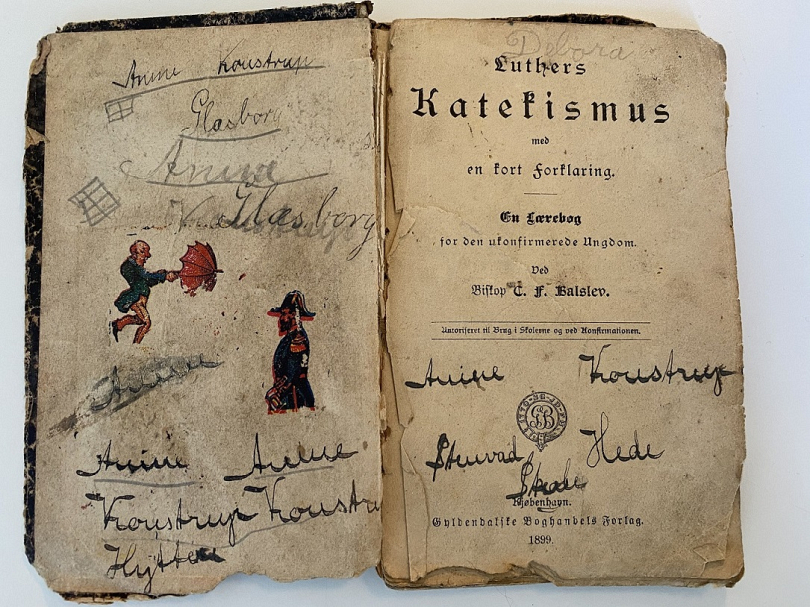 Anine Koustrup
Glasborg
Anine
Glasborg
Anine
Anine Anine
Koustrup Koustru
Hytten
Debora
Luthers
Katekismus
med
en kort Forklaring.
En Lærebog
for den ukonfirmerede Ungdom.
Ved
Biskop C. F. Balslev.
Autoriseret til Brug i Skolerne og ved Konfirmationen.
Anine Koustrup
Stuvad Hede
Skole
Kjøbenhavn.
Gyldendalske Boghandels Forlag.
1899.